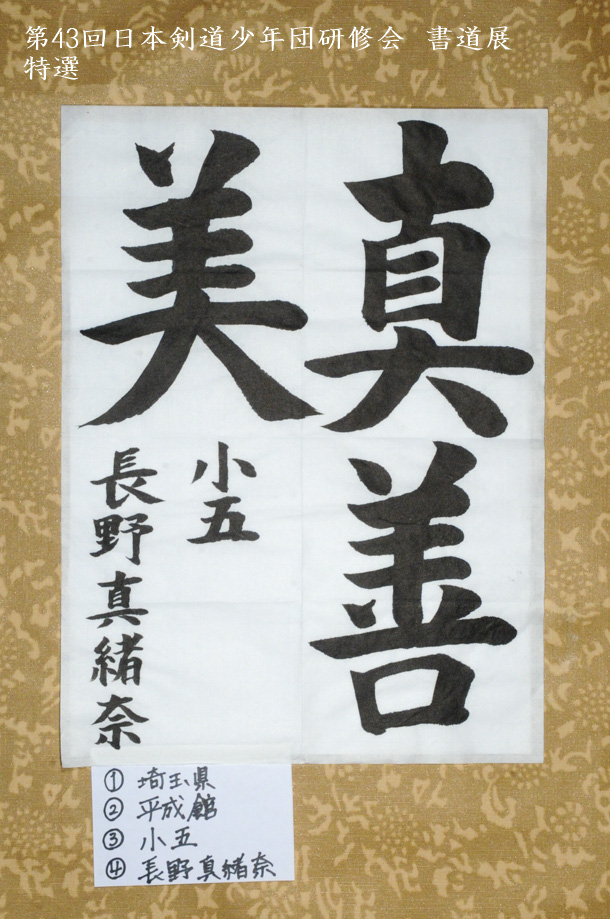 第43回日本剣道少年団研修会　書道展
特選
真善
美
小五
長野真緒奈
① 埼玉県
② 平成館
③ 小五
④ 長野真緒奈